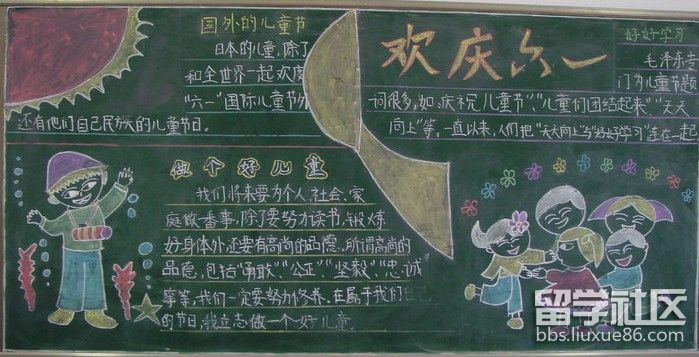 国外的儿童节
日本的儿童,除了
和全世界一起欢度
"六一"国际儿童节外
还有他们自己民族的儿童节日。
欢庆六一
好好学习
毛泽东专
门为儿童节题
词很多,如:庆祝儿童节","儿童们团结起来","天天
向上"等。一直以来,人们把"天天向上"与"好好学习"连在一起
做个好儿童
我们将来要为个人、社会、家
庭做番事,除了要努力读书,锻炼
好身体外,还要有高尚的品德。所谓高尚的
品德,包括"勇敢""公正""坚毅""忠诚
等等,我们一定要努力修养。在属于我们自
的节日,我立志做一个好儿童。
留学社区
bbs.liuxue86.com